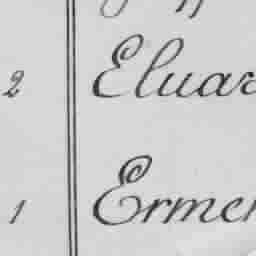 2 Eluar
1 Ermen